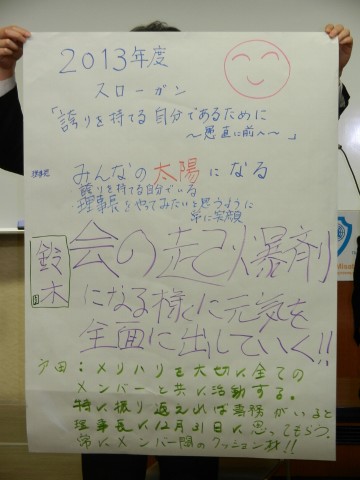 2013年度
スローガン
「誇りを持てる自分であるために
〜愚直に前へ〜」
理事長
みんなの太陽になる
誇りを持てる自分でいる
理事長をやってみたいと思うように
常に笑顔
鈴木
会の起爆剤
になる様に元気を
全面に出していく!!
戸田:メリハリを大切に全ての
メンバーと共に活動する。
特に振り返えれば専務がいると
理事長に12月31日に思ってもらう。
常にメンバー間のクッション材!!